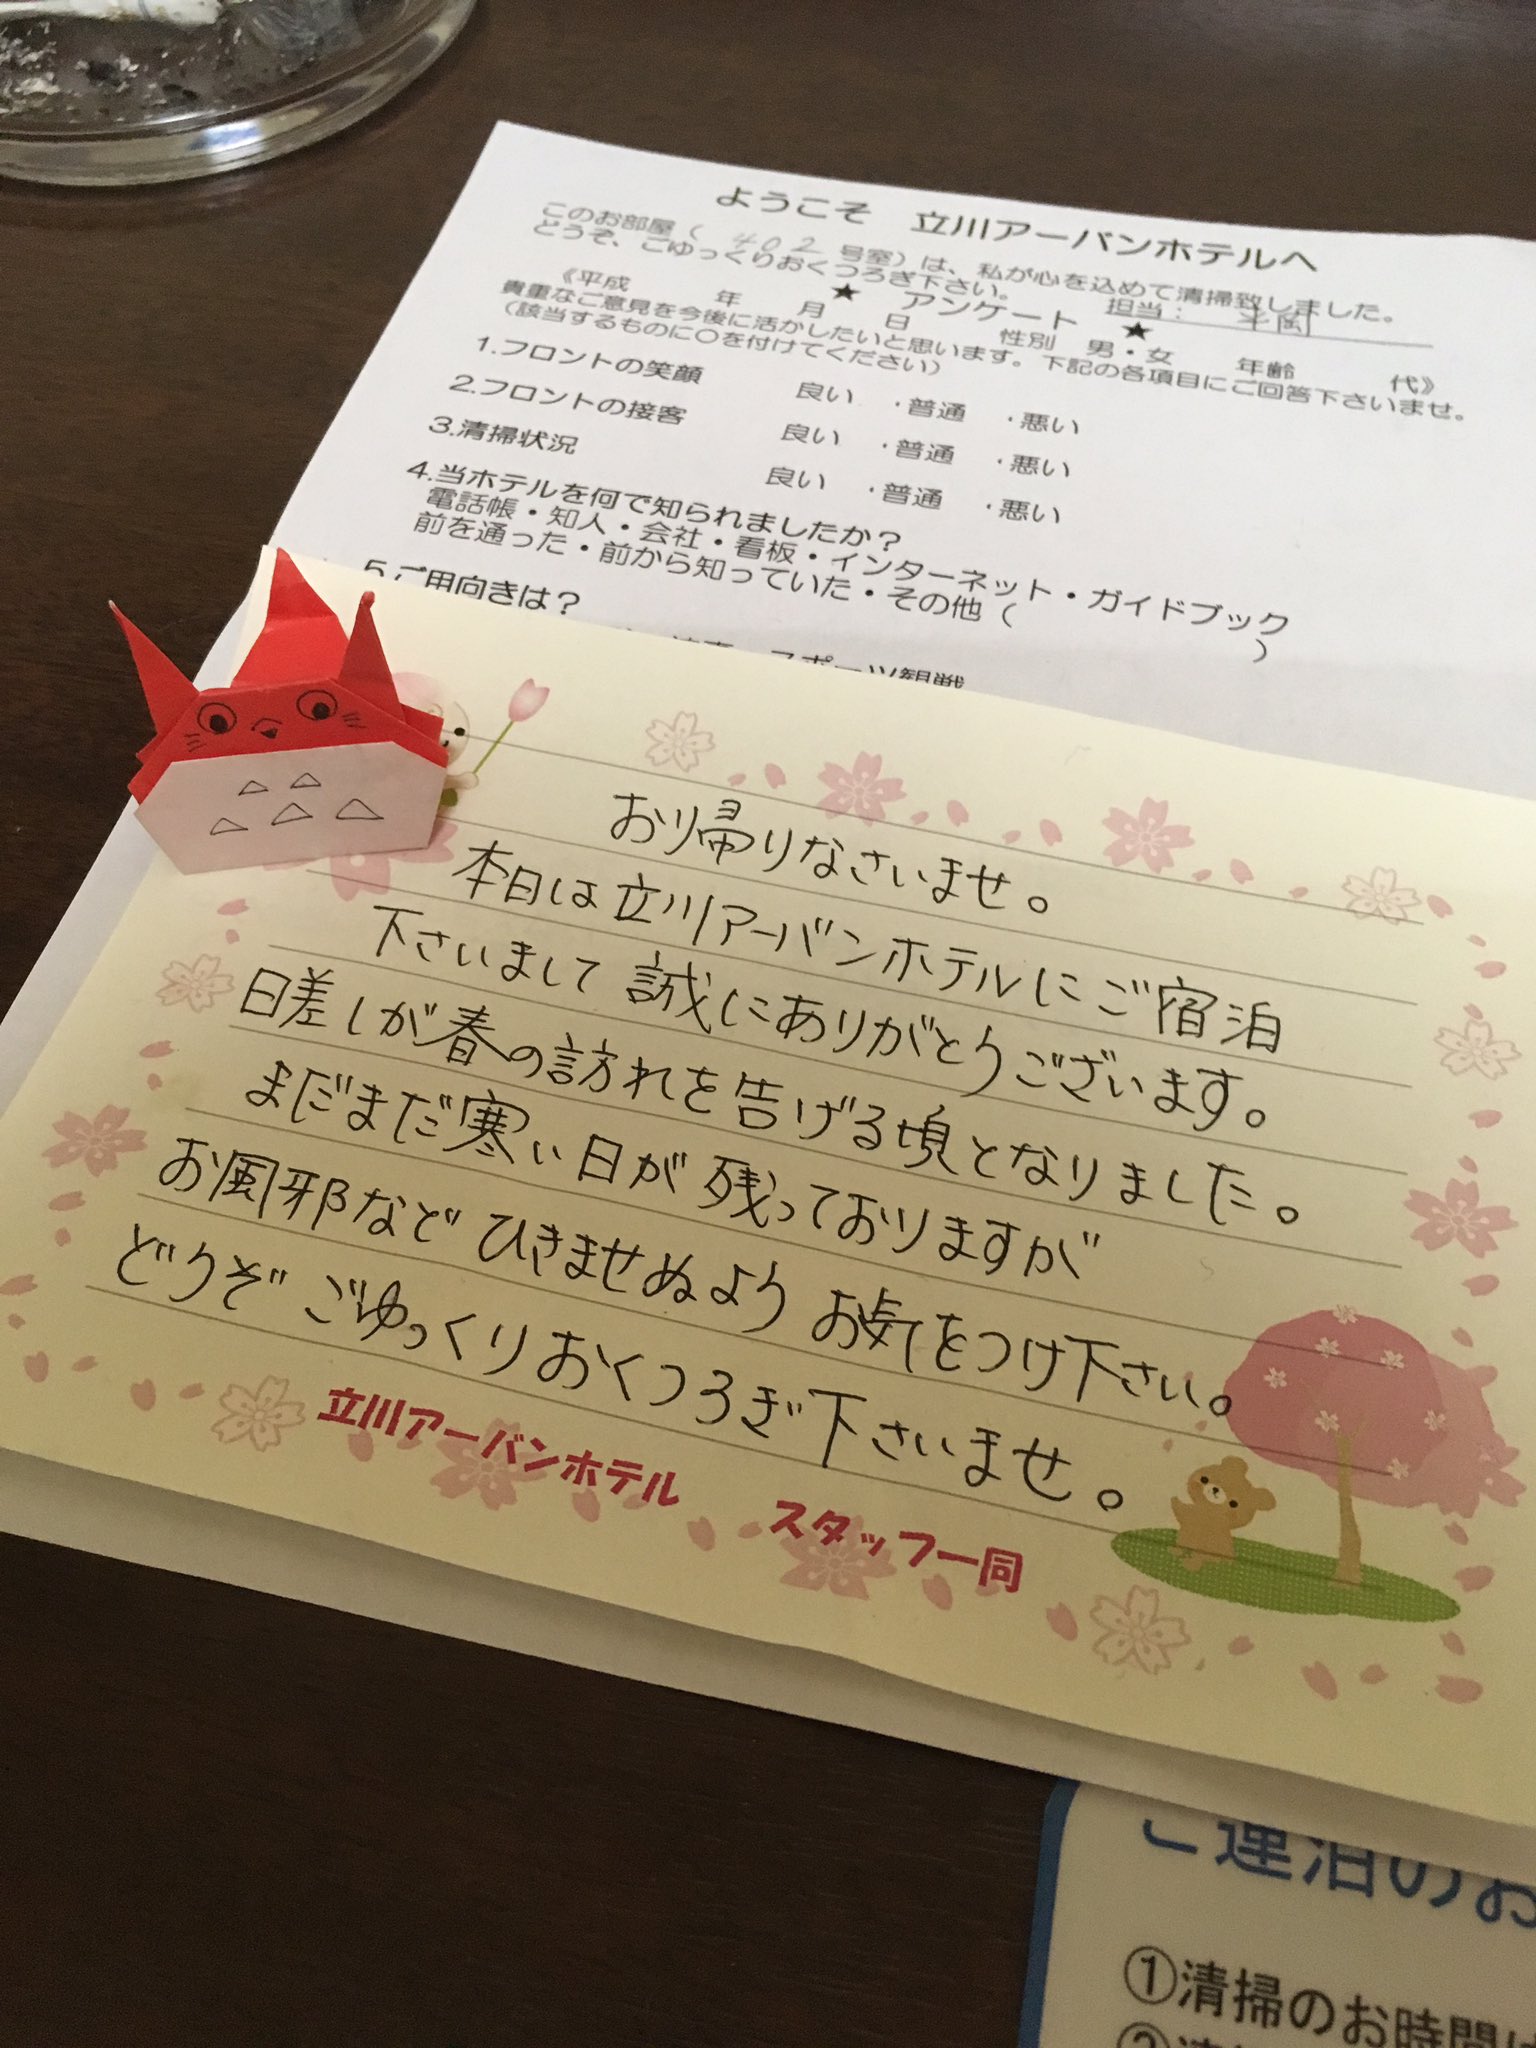 ようこそ 立川アーバンホテルへ
このお部屋( 402 号室)は、私が心を込めて清掃致しました。
どうぞ、ごゆっくりおくつろぎ下さい。 担当:
★ アンケート ★
《平成 年 月 日 性別 男・女 年齢 代》
貴重なご意見を今後に活かしたいと思います。下記の各項目にご回答下さいませ。
(該当するものに〇を付けてください)
1.フロントの笑顔 良い ・普通 ・悪い
2.フロントの接客 良い ・普通 ・悪い
3.清掃状況 良い ・普通 ・悪い
4.当ホテルを何で知られましたか?
電話帳・知人・会社・看板・インターネット・ガイドブック
前を通った・前から知っていた・その他( )
5.ご用向きは?
スポーツ観戦
お帰りなさいませ。
本日は立川アーバンホテルにご宿泊
下さいまして誠にありがとうございます。
日差しが春の訪れを告げる頃となりました。
まだまだ寒い日が残っておりますが
お風邪などひきませぬようお気をつけ下さい。
どうぞごゆっくりおくつろぎ下さいませ。
立川アーバンホテル スタッフ一同
ご連泊のお
①清掃のお時間は